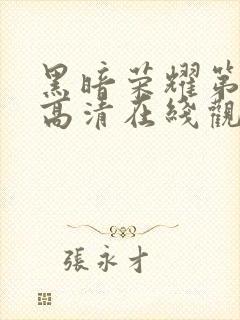 黑暗荣耀第
高清在线觀
張永才